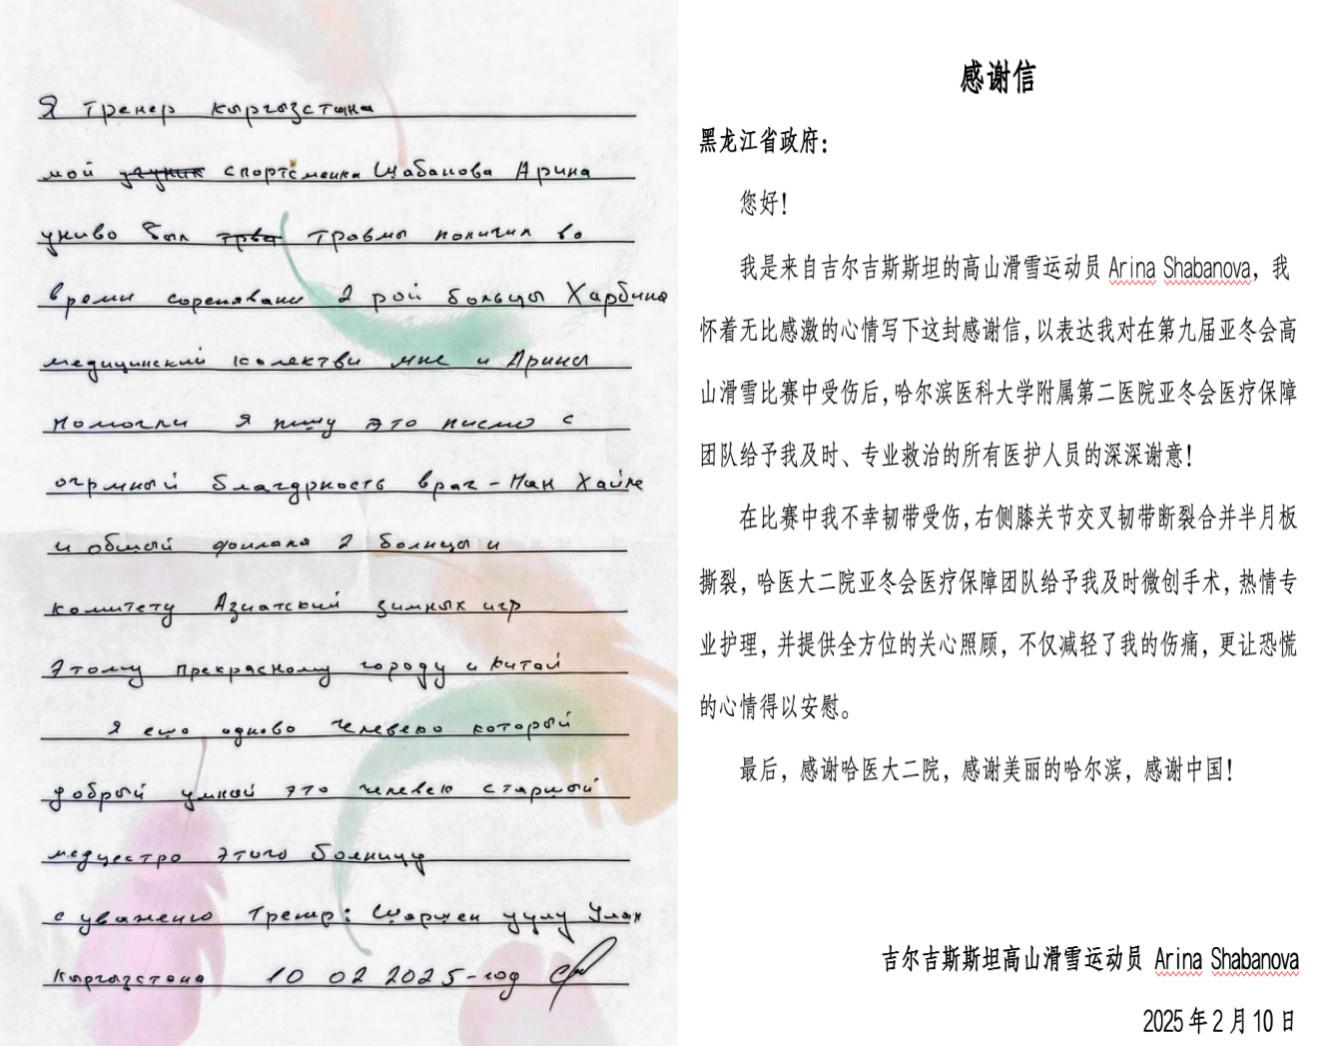 Я тренер кыргызстана
мой спортсменка Шабанова Арина
униво был травмы поличил во
время соренавани 2 рой больцы Харбина
медицинский колектви мне и Арины
помогли я пишу это писмо с
огрмный благдрность врач - Ман Хайле
и обший филала 2 болницы и
комитету Азиатский зимных игр
этому прекрасному городу и Китай
я ешо одново челевекю который
добрый умной это челевекю старший
медцестро этого болницу
с уваженею Тренр: Шаршен уулу Улан
Кыргызстана 10 02 2025-год
感谢信
黑龙江省政府：
您好！
我是来自吉尔吉斯斯坦的高山滑雪运动员 Arina Shabanova，我
怀着无比感激的心情写下这封感谢信，以表达我对在第九届亚冬会高
山滑雪比赛中受伤后，哈尔滨医科大学附属第二医院亚冬会医疗保障
团队给予我及时、专业救治的所有医护人员的深深谢意！
在比赛中我不幸韧带受伤，右侧膝关节交叉韧带断裂合并半月板
撕裂，哈医大二院亚冬会医疗保障团队给予我及时微创手术，热情专
业护理，并提供全方位的关心照顾，不仅减轻了我的伤痛，更让恐慌
的心情得以安慰。
最后，感谢哈医大二院，感谢美丽的哈尔滨，感谢中国！
吉尔吉斯斯坦高山滑雪运动员 Arina Shabanova
2025 年 2 月 10 日